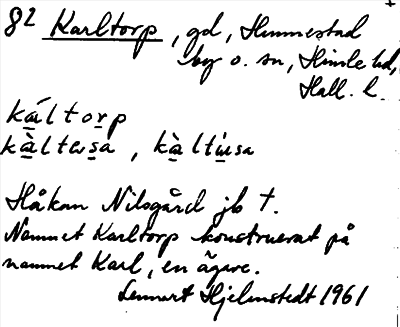 82 Karltorp, gd, Hunnestad
by o. sn, Himle hd,
Hall. l.
káltorp
kàltersa, kàltúsa
Håkan Nilsgård jb †.
Namnet Karltorp konstruerat på
namnet Karl, en ägare.
Lennart Hjelmstedt 1961